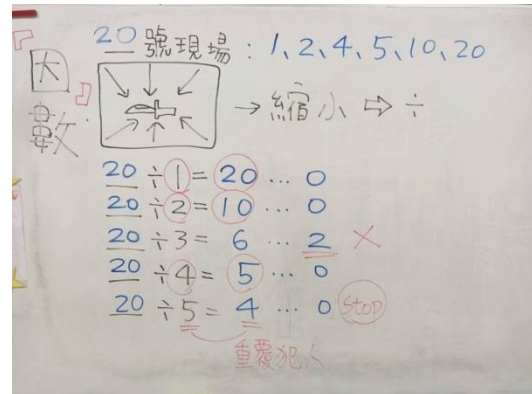 『因數』
20 號現場：1、2、4、5、10、20
→ 縮小 ⇨ ÷
20 ÷ 1 = 20 … 0
20 ÷ 2 = 10 … 0
20 ÷ 3 = 6 … 2 ×
20 ÷ 4 = 5 … 0
20 ÷ 5 = 4 … 0 STOP
重覆犯人